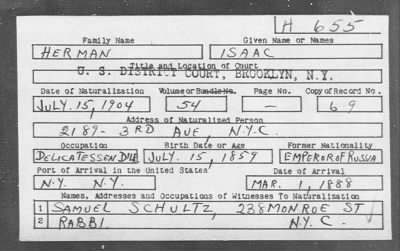 H 655
Family Name Given Name or Names
HERMAN ISAAC
Title and Location of Court
U. S. DISTRICT COURT, BROOKLYN, N.Y.
Date of Naturalization Volume or Bundle No. Page No. Copy of Record No.
JULY. 15, 1904 54 — 69
Address of Naturalized Person
2189- 3RD AVE, N.Y.C.
Occupation Birth Date or Age Former Nationality
DELICATESSEN DLR JULY. 15, 1859 EMPEROR OF RUSSIA
Port of Arrival in the United States Date of Arrival
N.Y. N.Y. MAR. 1, 1888
Names, Addresses and Occupations of Witnesses To Naturalization
1 SAMUEL SCHULTZ, 238 MONROE ST
2 RABBI. N.Y.C.